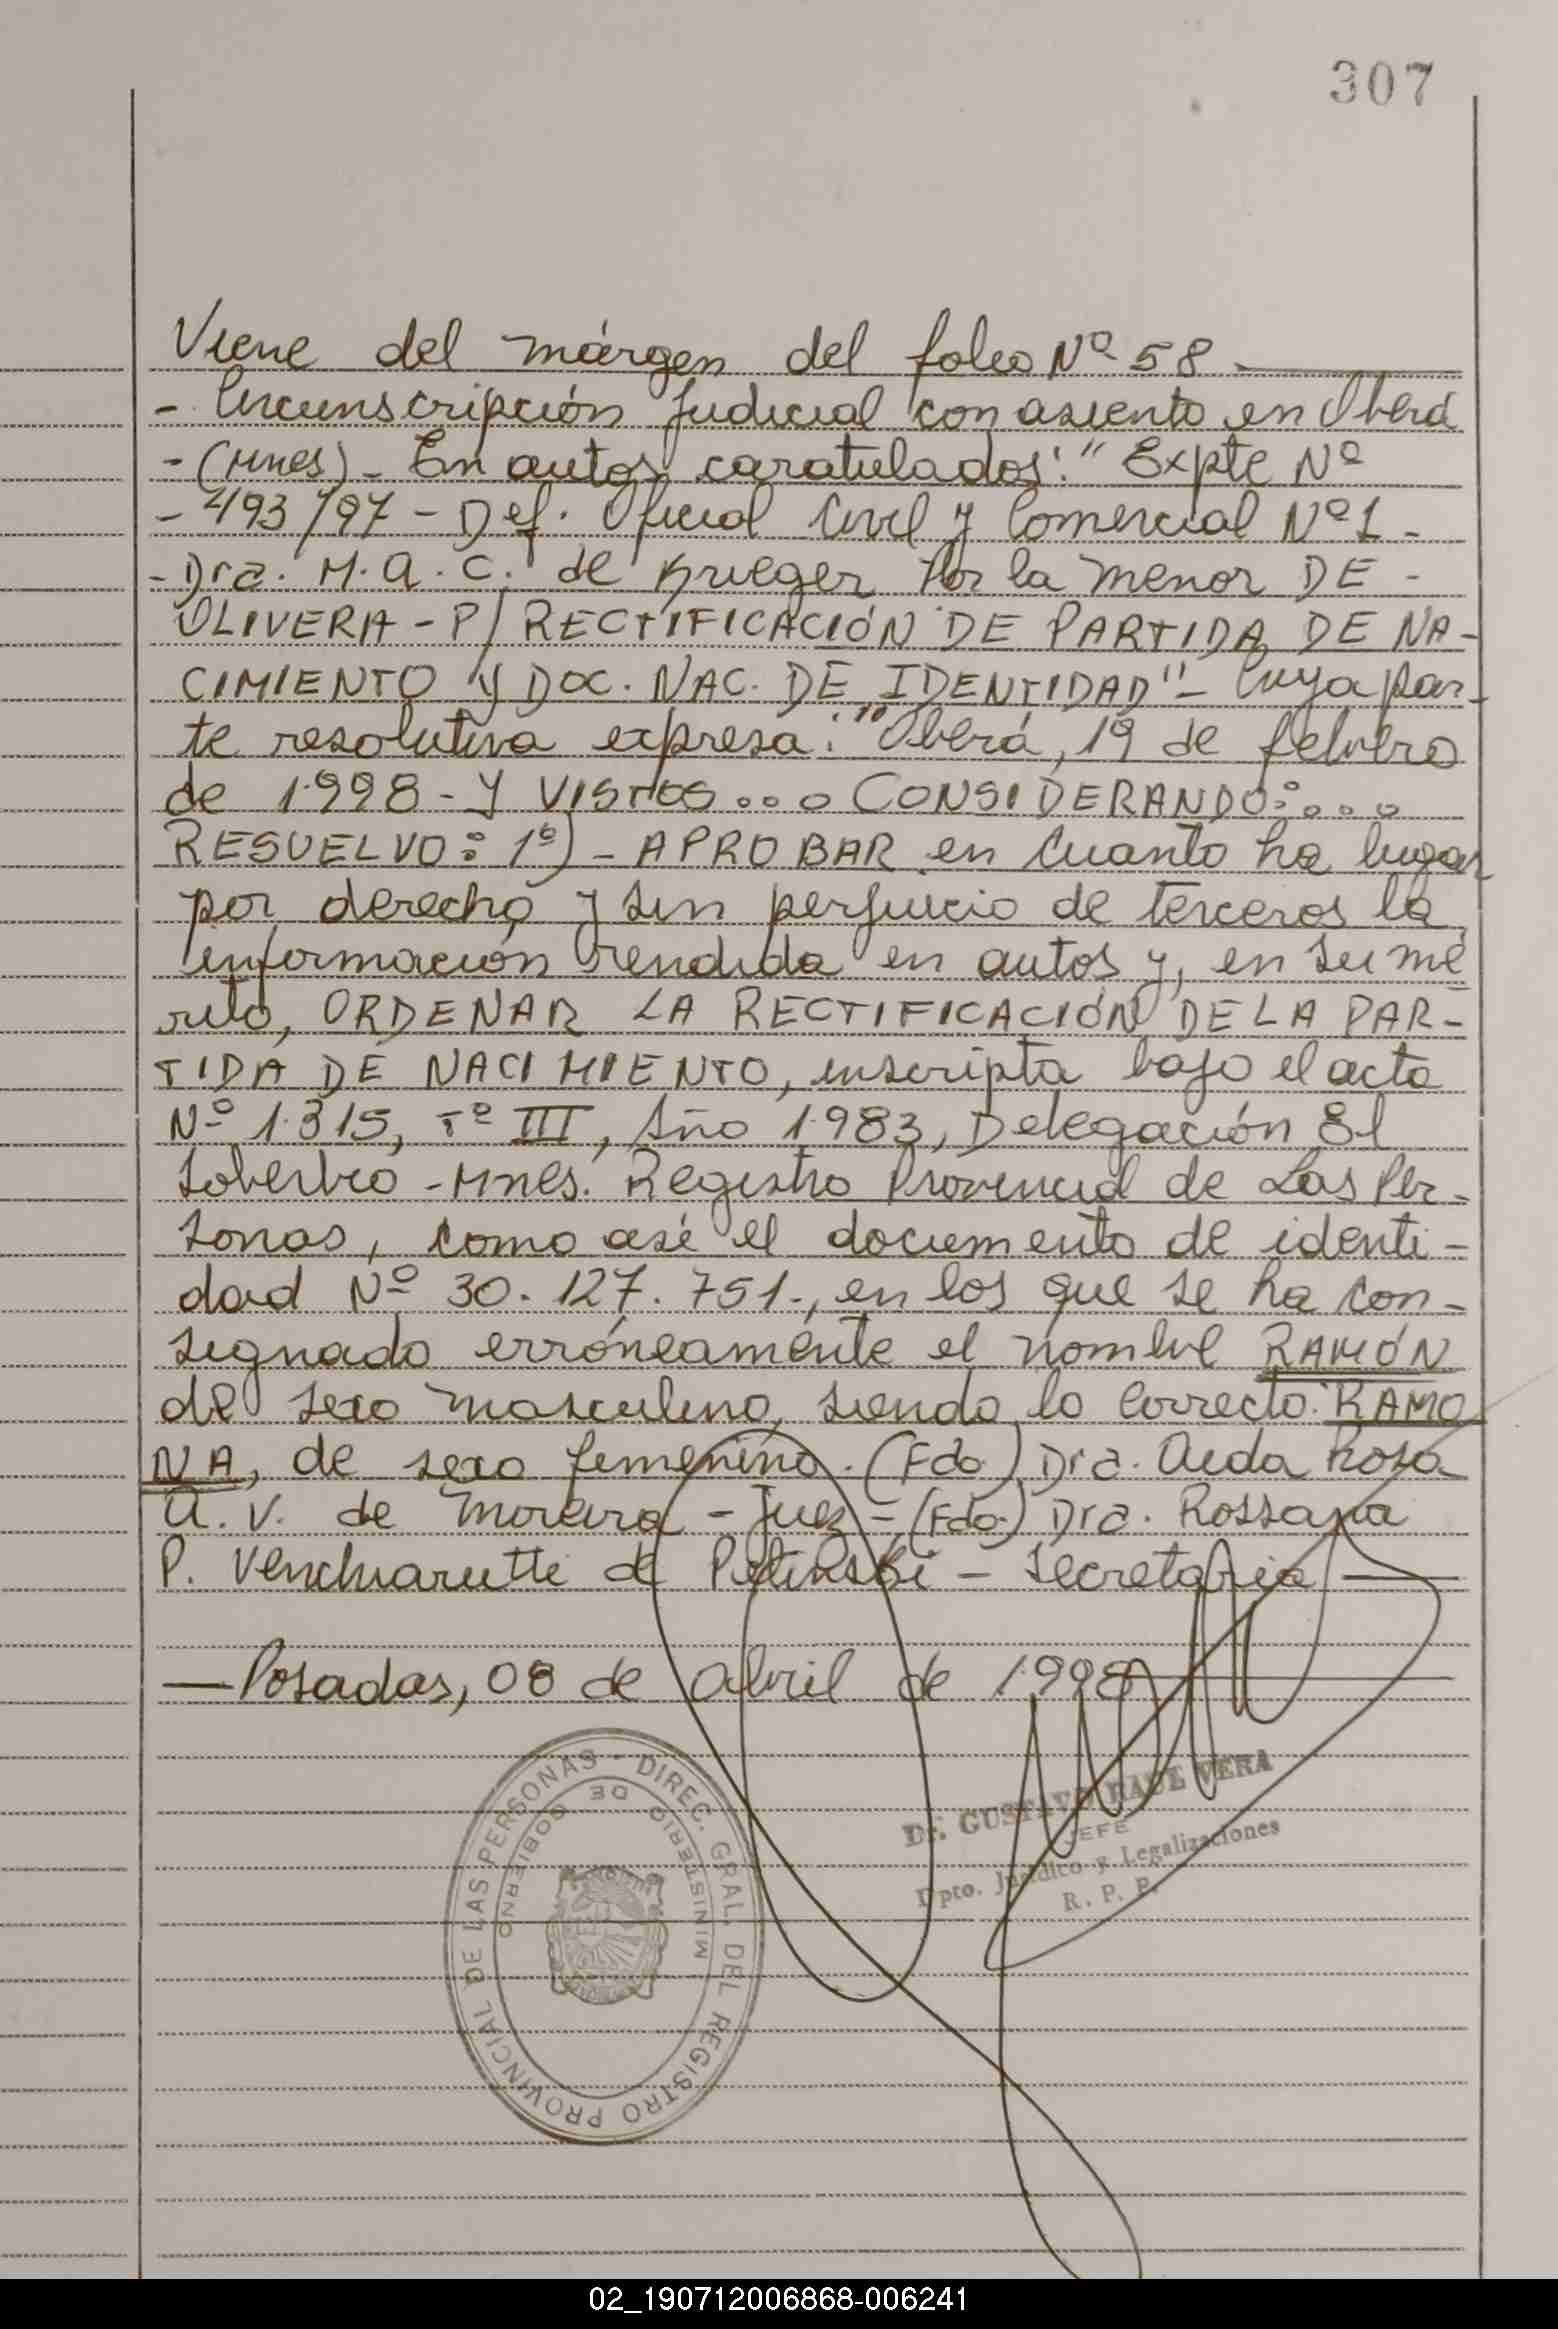 307
Viene del márgen del folio Nº 58
- Circunscripción Judicial con asiento en Oberá
- (Mnes) - En autos caratulados: "Expte Nº
- 493/97 - Def. Oficial Civil y Comercial Nº 1 -
- Dra. M. A. C. de Krieger Por la menor DE -
OLIVERA - P/ RECTIFICACIÓN DE PARTIDA DE NA-
CIMIENTO Y DOC. NAC. DE IDENTIDAD" - Cuya par-
te resolutiva expresa: "Oberá, 19 de febrero
de 1.998 - Y VISTOS... CONSIDERANDO:...
RESUELVO: 1º) - APROBAR en cuanto ha lugar
por derecho y sin perjuicio de terceros la
información rendida en autos y, en su mé
rito, ORDENAR LA RECTIFICACIÓN DE LA PAR-
TIDA DE NACIMIENTO, inscripta bajo el acta
Nº 1.315, Tº III, Año 1.983, Delegación El
Soberbio - Mnes. Registro Provincial de Las Per-
sonas, como asi el documento de identi-
dad Nº 30.127.751., en los que se ha con-
signado erróneamente el nombre RAMÓN
de sexo masculino, siendo lo correcto: RAMO
NA, de sexo femenino. (Fdo.) Dra. Aida Rosa
A. V. de Moreira - Juez - (Fdo.) Dra. Rossana
P. Venchiarutti de - Secretaria
- Posadas, 08 de abril de 1.998
DIREC. GRAL. DEL REGISTRO PROVINCIAL DE LAS PERSONAS -
MINISTERIO DE GOBIERNO
Dr. GUSTAVO RAUL VERA
JEFE
Dpto. Jurídico y Legalizaciones
R. P. P.
02_190712006868-006241